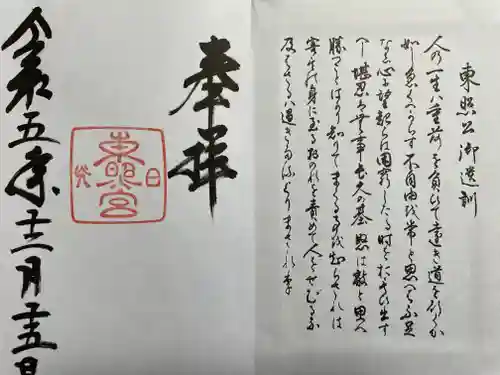 東照公御遺訓
人の一生ハ重荷を負ひて遠き道を行くか
如し急くへからす不自由を常と思へハ不足
なし心に望起らは困窮したる時をおもひ出す
へし堪忍は無事長久の基怒は敵と思へ
勝つことはかり知りてまくることを知らされは
害其の身に至るおのれを責めて人をせむるな
及はさるハ過きたるよりまされり
奉拝
日光
東照宮
令和五年十二月十五日